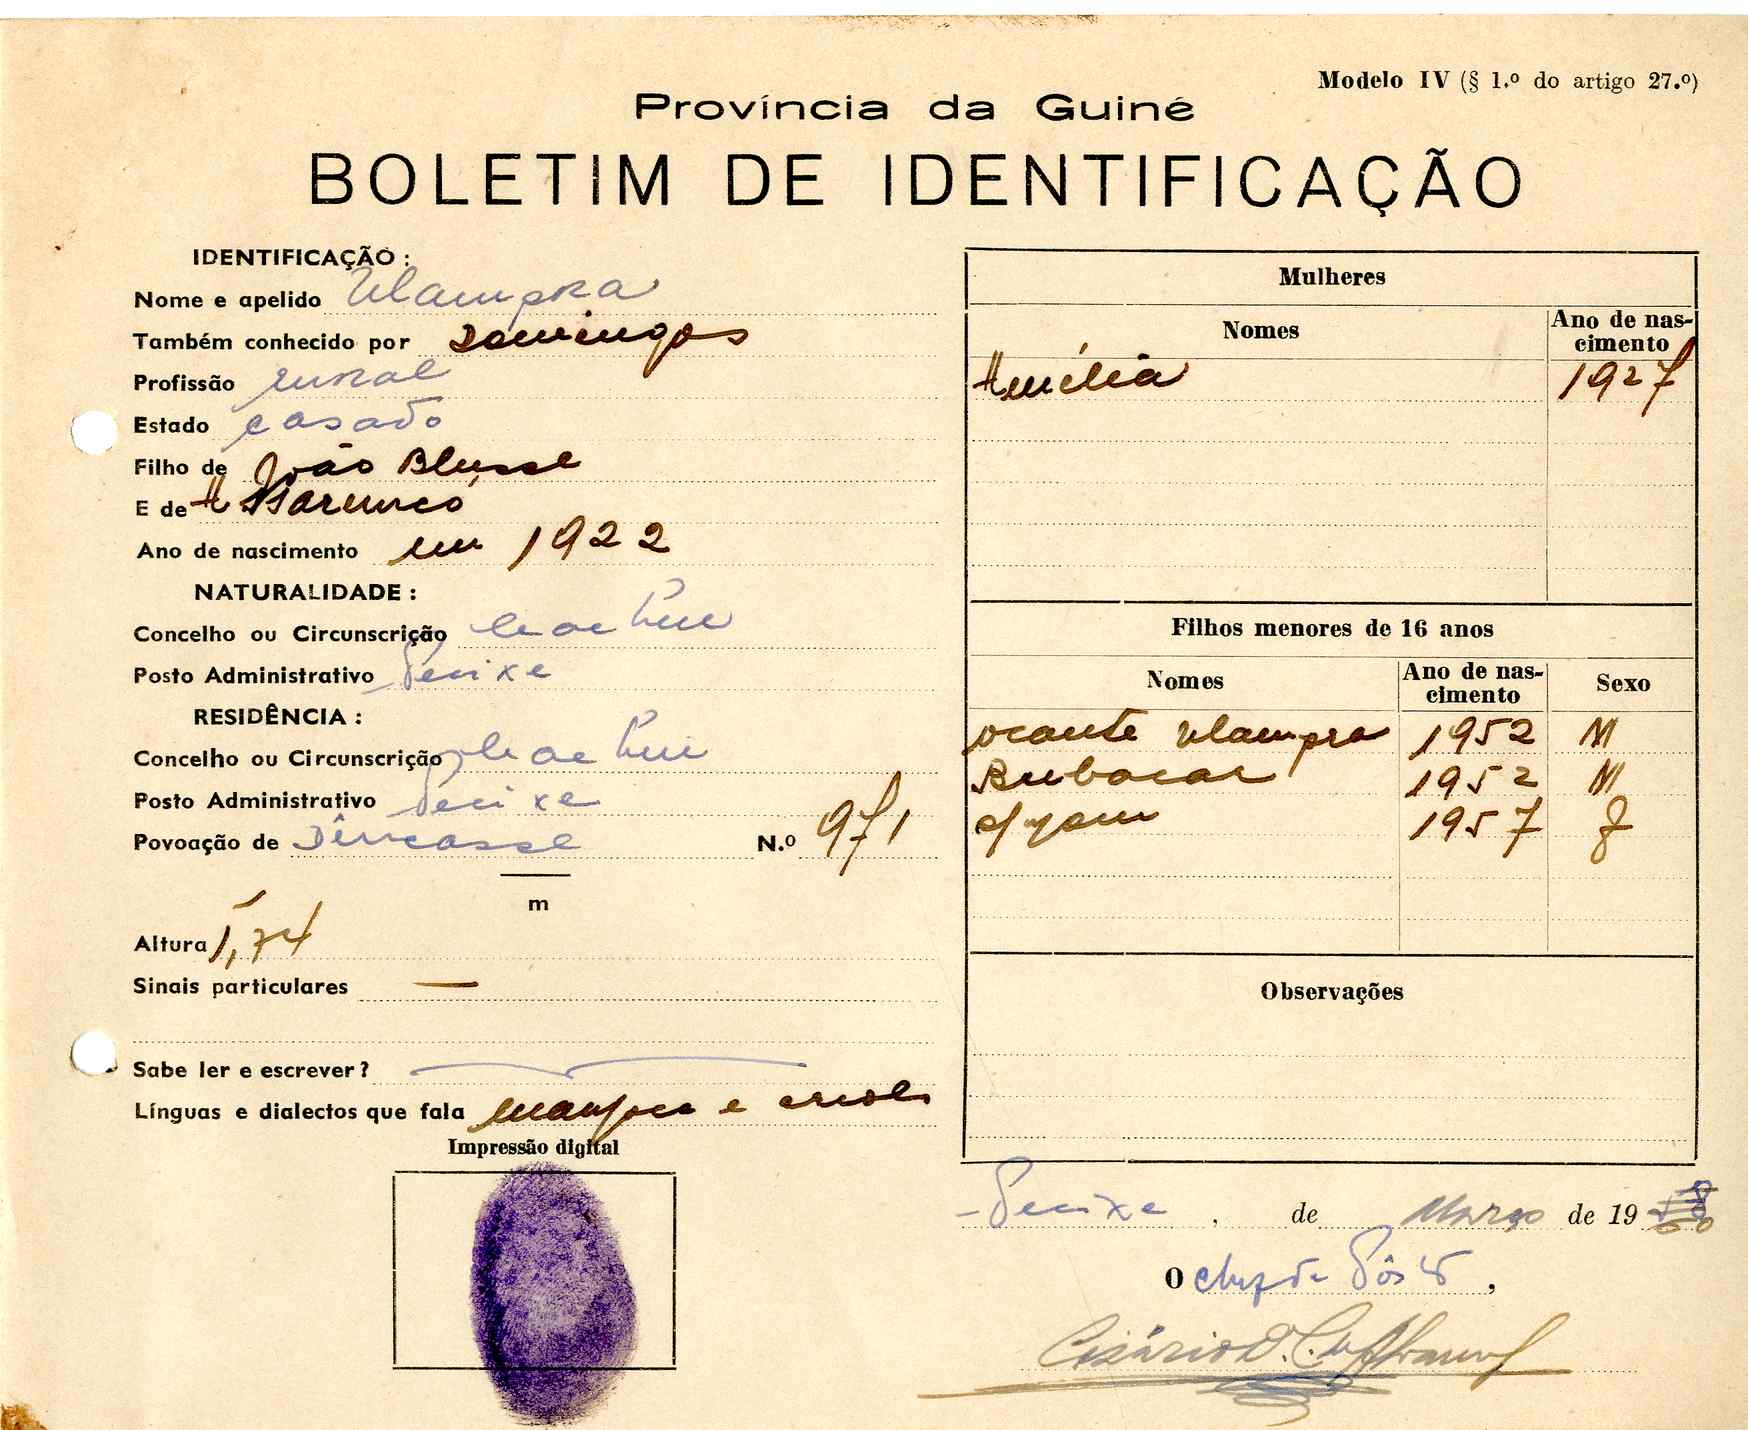 Modelo IV (§ 1.º do artigo 27.º)
Província da Guiné
BOLETIM DE IDENTIFICAÇÃO
IDENTIFICAÇÃO :
Nome e apelido Ulampra
Também conhecido por Domingos
Profissão rural
Estado casado
Filho de João Blusse
E de
Ano de nascimento em 1922
NATURALIDADE :
Concelho ou Circunscrição Cacheu
Posto Administrativo Pecixe
RESIDÊNCIA :
Concelho ou Circunscrição Cacheu
Posto Administrativo Pecixe
Povoação de N.º 971
m
Altura 1,74
Sinais particulares —
Sabe ler e escrever?
Línguas e dialectos que fala manjaca e crioulo
Impressão digital
Mulheres
Nomes Ano de nas-
cimento
Amélia 1927
Filhos menores de 16 anos
Nomes Ano de nas-
cimento Sexo
Ocante Ulampra 1952 M
Bubacar 1952 M
1957 F
Observações
Pecixe , de Março de 19
O chefe de Pôsto ,
Cesário D. C.